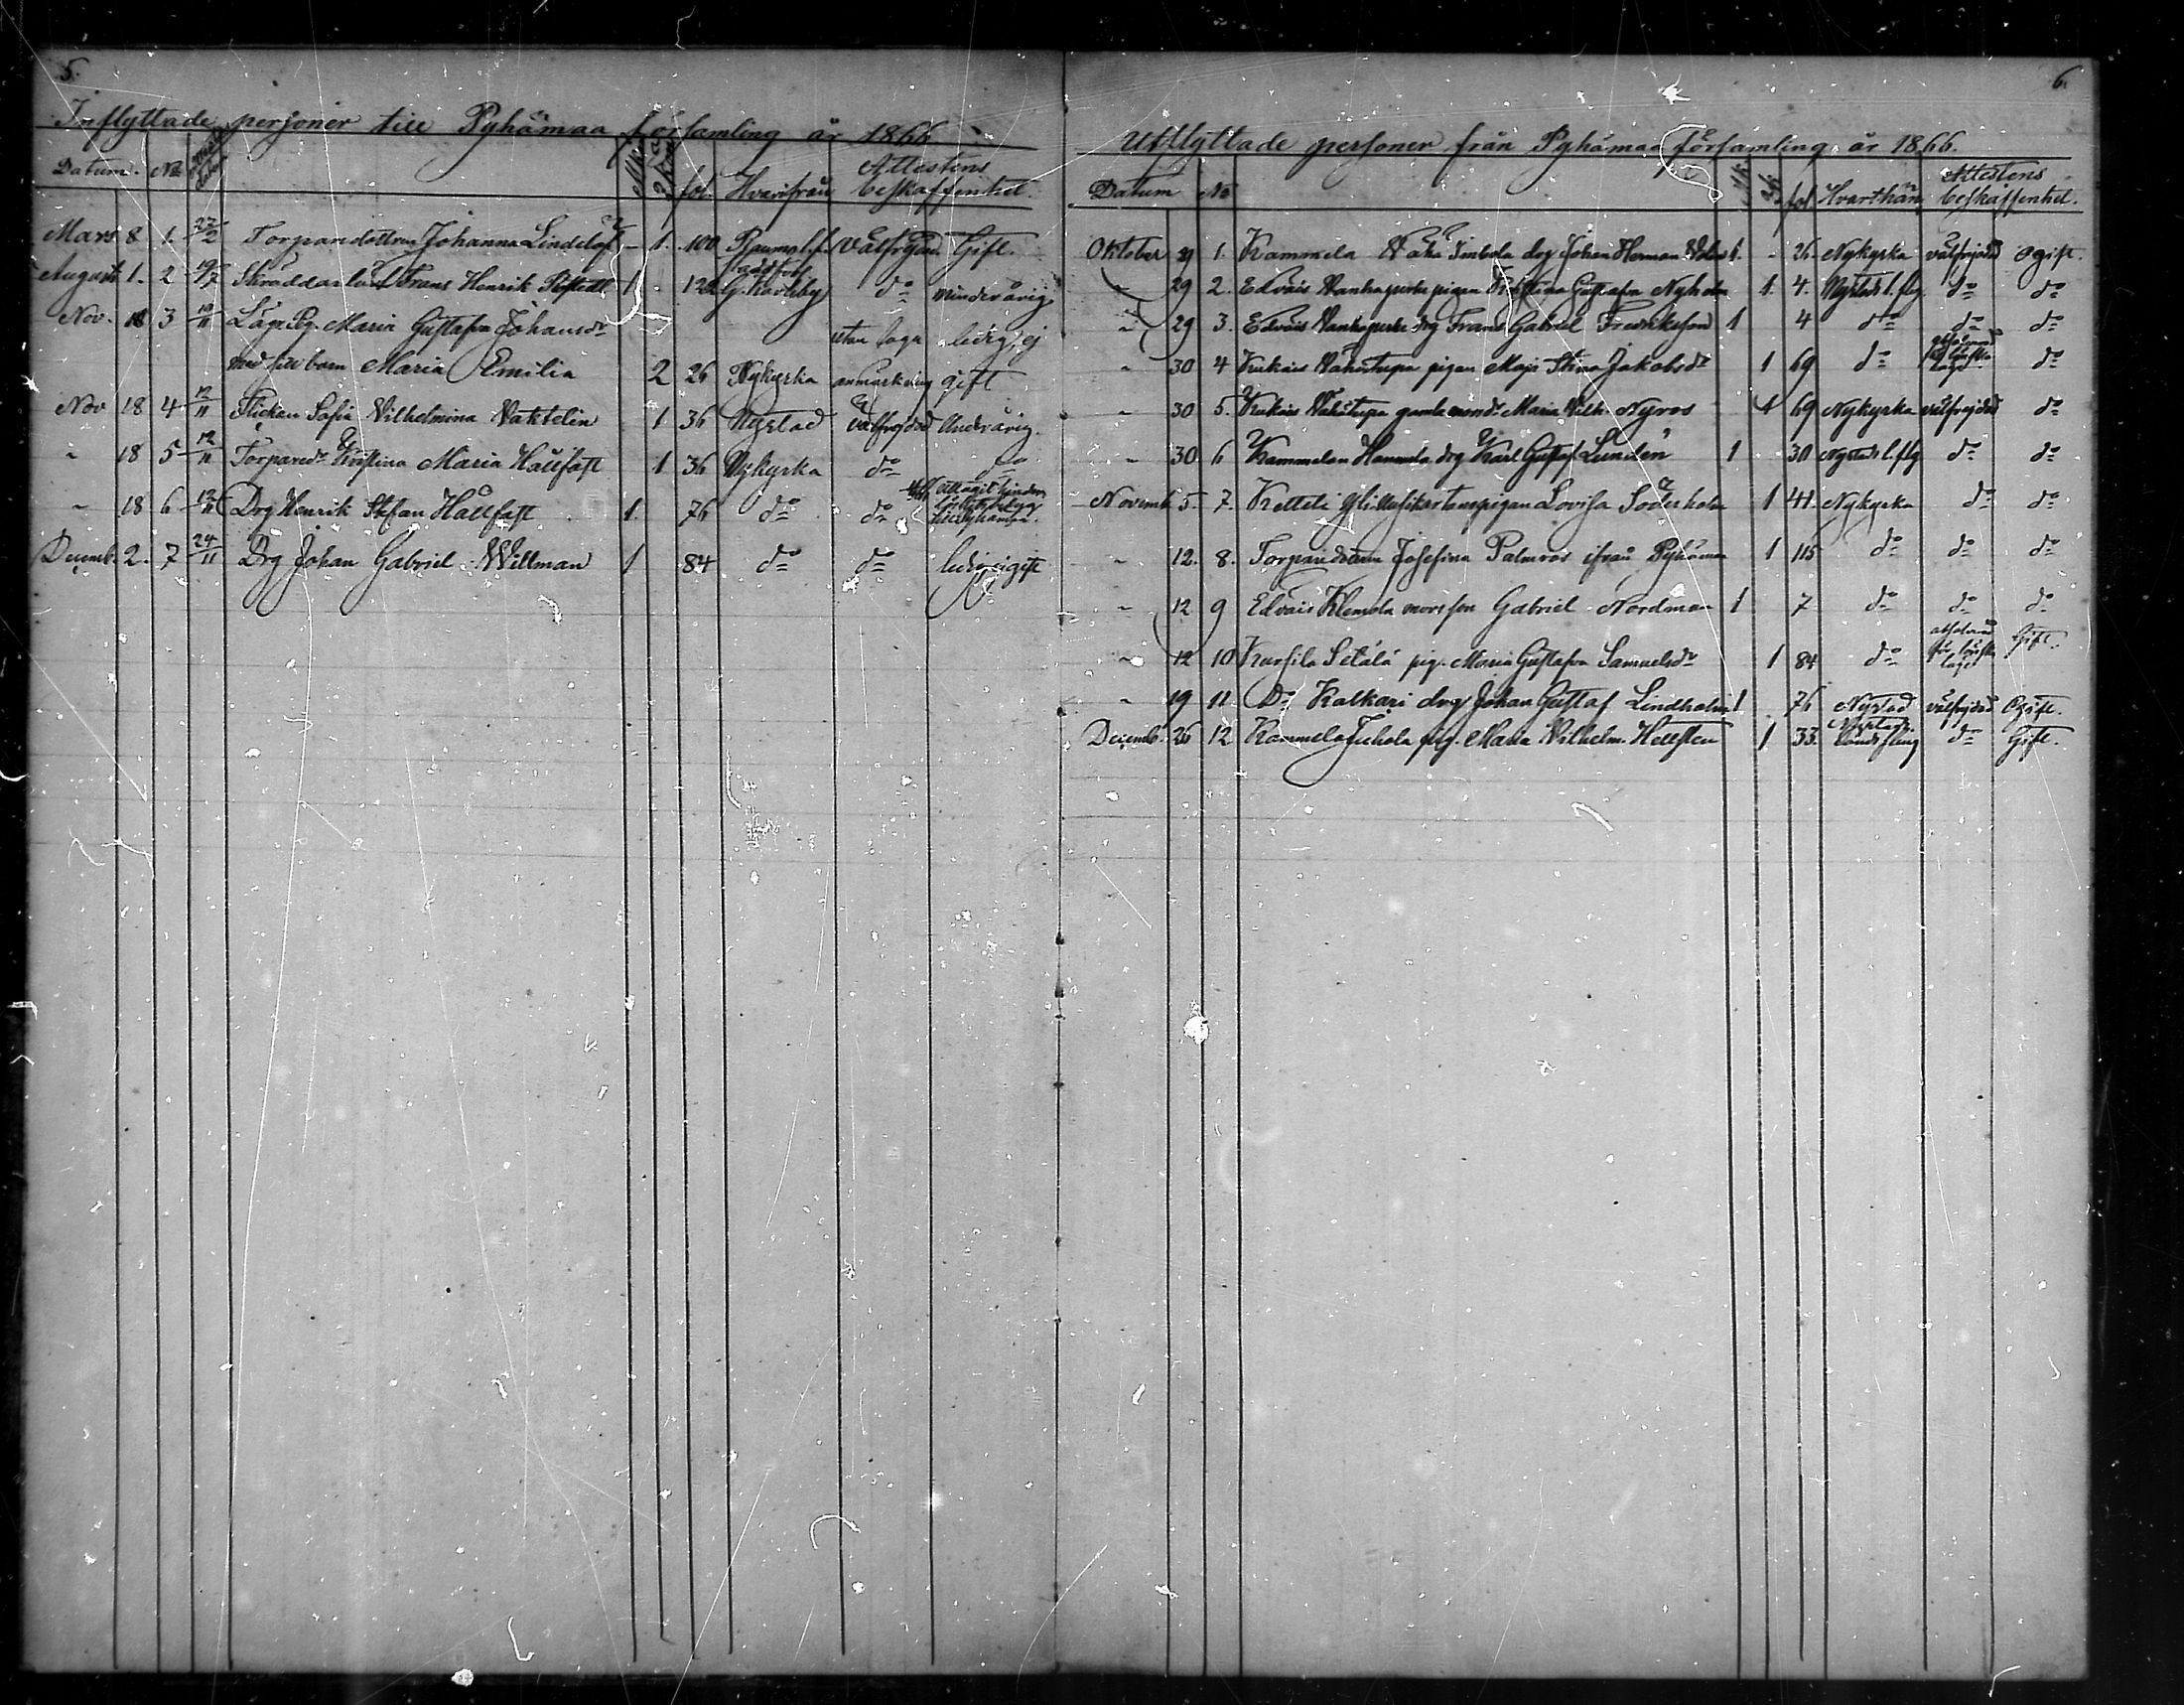 5.
Inflyttade personer till Pyhämaa församling år 1866
Datum. No Attest datum Mk Qk fol. Hvarifrån Attestens beskaffenhet.
Mars 8 1. 27/2 Torparedottren Johanna Lindelöf - 1. 100 Raumo l.f. välfrejdad Gift.
Augusti 1. 2 19/7 Skräddar Frans Henrik 1 - 122 G. Karleby do minderårig
Nov. 18 3 10/11 Maria Gustafva Johansdr utan laga ledig, ej
med sitt barn Maria Emilia 2 26 Nykyrka anmärkning gift
Nov 18 4 12/11 Flickan Sofia Vilhelmina Vahtelin 1 36 Nystad välfrejdad
" 18 5 12/11 Torparedr Kristina Maria Hallfast 1 36 Nykyrka do do
" 18 6 12/11 Drg Henrik Stefan Hallfast 1. 76 do do
Decemb. 2. 7 24/11 Drg Johan Gabriel Willman 1 84 do do ledig ogift
6.
Utflyttade personer från Pyhämaa församling år 1866.
Datum No Mk Qk fol Hvarthän Attestens beskaffenhet.
Oktober 29 1. Kammela drg Johan Herman 1. - 26. Nykyrka välfrejdad Ogift.
" 29 2. Edväis Vanhaperke pigan Kristina Gustafva Nyholm 1. 4. Nystads l.flg do do
" 29 3. Edväis Vanhaperke drg Frans Gabriel Fredriksson 1 4 do do do
" 30 4 Kukais Vähätupa pigan Maja Stina Jakobsdr 1 69 do do
" 30 5. Kukais Vähätupa gamla Maria Vilh. Nyroos 1 69 Nykyrka välfrejdad do
" 30 6 Kammela Hannula drg Karl Gustaf Lundén 1 30 Nystads l.flg do do
Novemb. 5. 7. Ketteli pigan Lovisa Söderholm 1 41. Nykyrka do do
" 12. 8. Torparedottern Josefina Palmroos ifrån Pyhämaa 1 115 do do do
" 12 9 Edväis Klemola Gabriel Nordman 1 7 do do do
" 12 10 Kursila Setälä pig. Maria Gustafva Samuelsdr 1 84 do Gift.
" 19 11 Do Kalkari drg Johan Gustaf Lindholm 1 76 Nystad välfrejdad Ogift.
Decemb. 26 12 Kammela pig. Maria Vilhelm. Hellsten 1 33. Nystads landsfling do Gift.